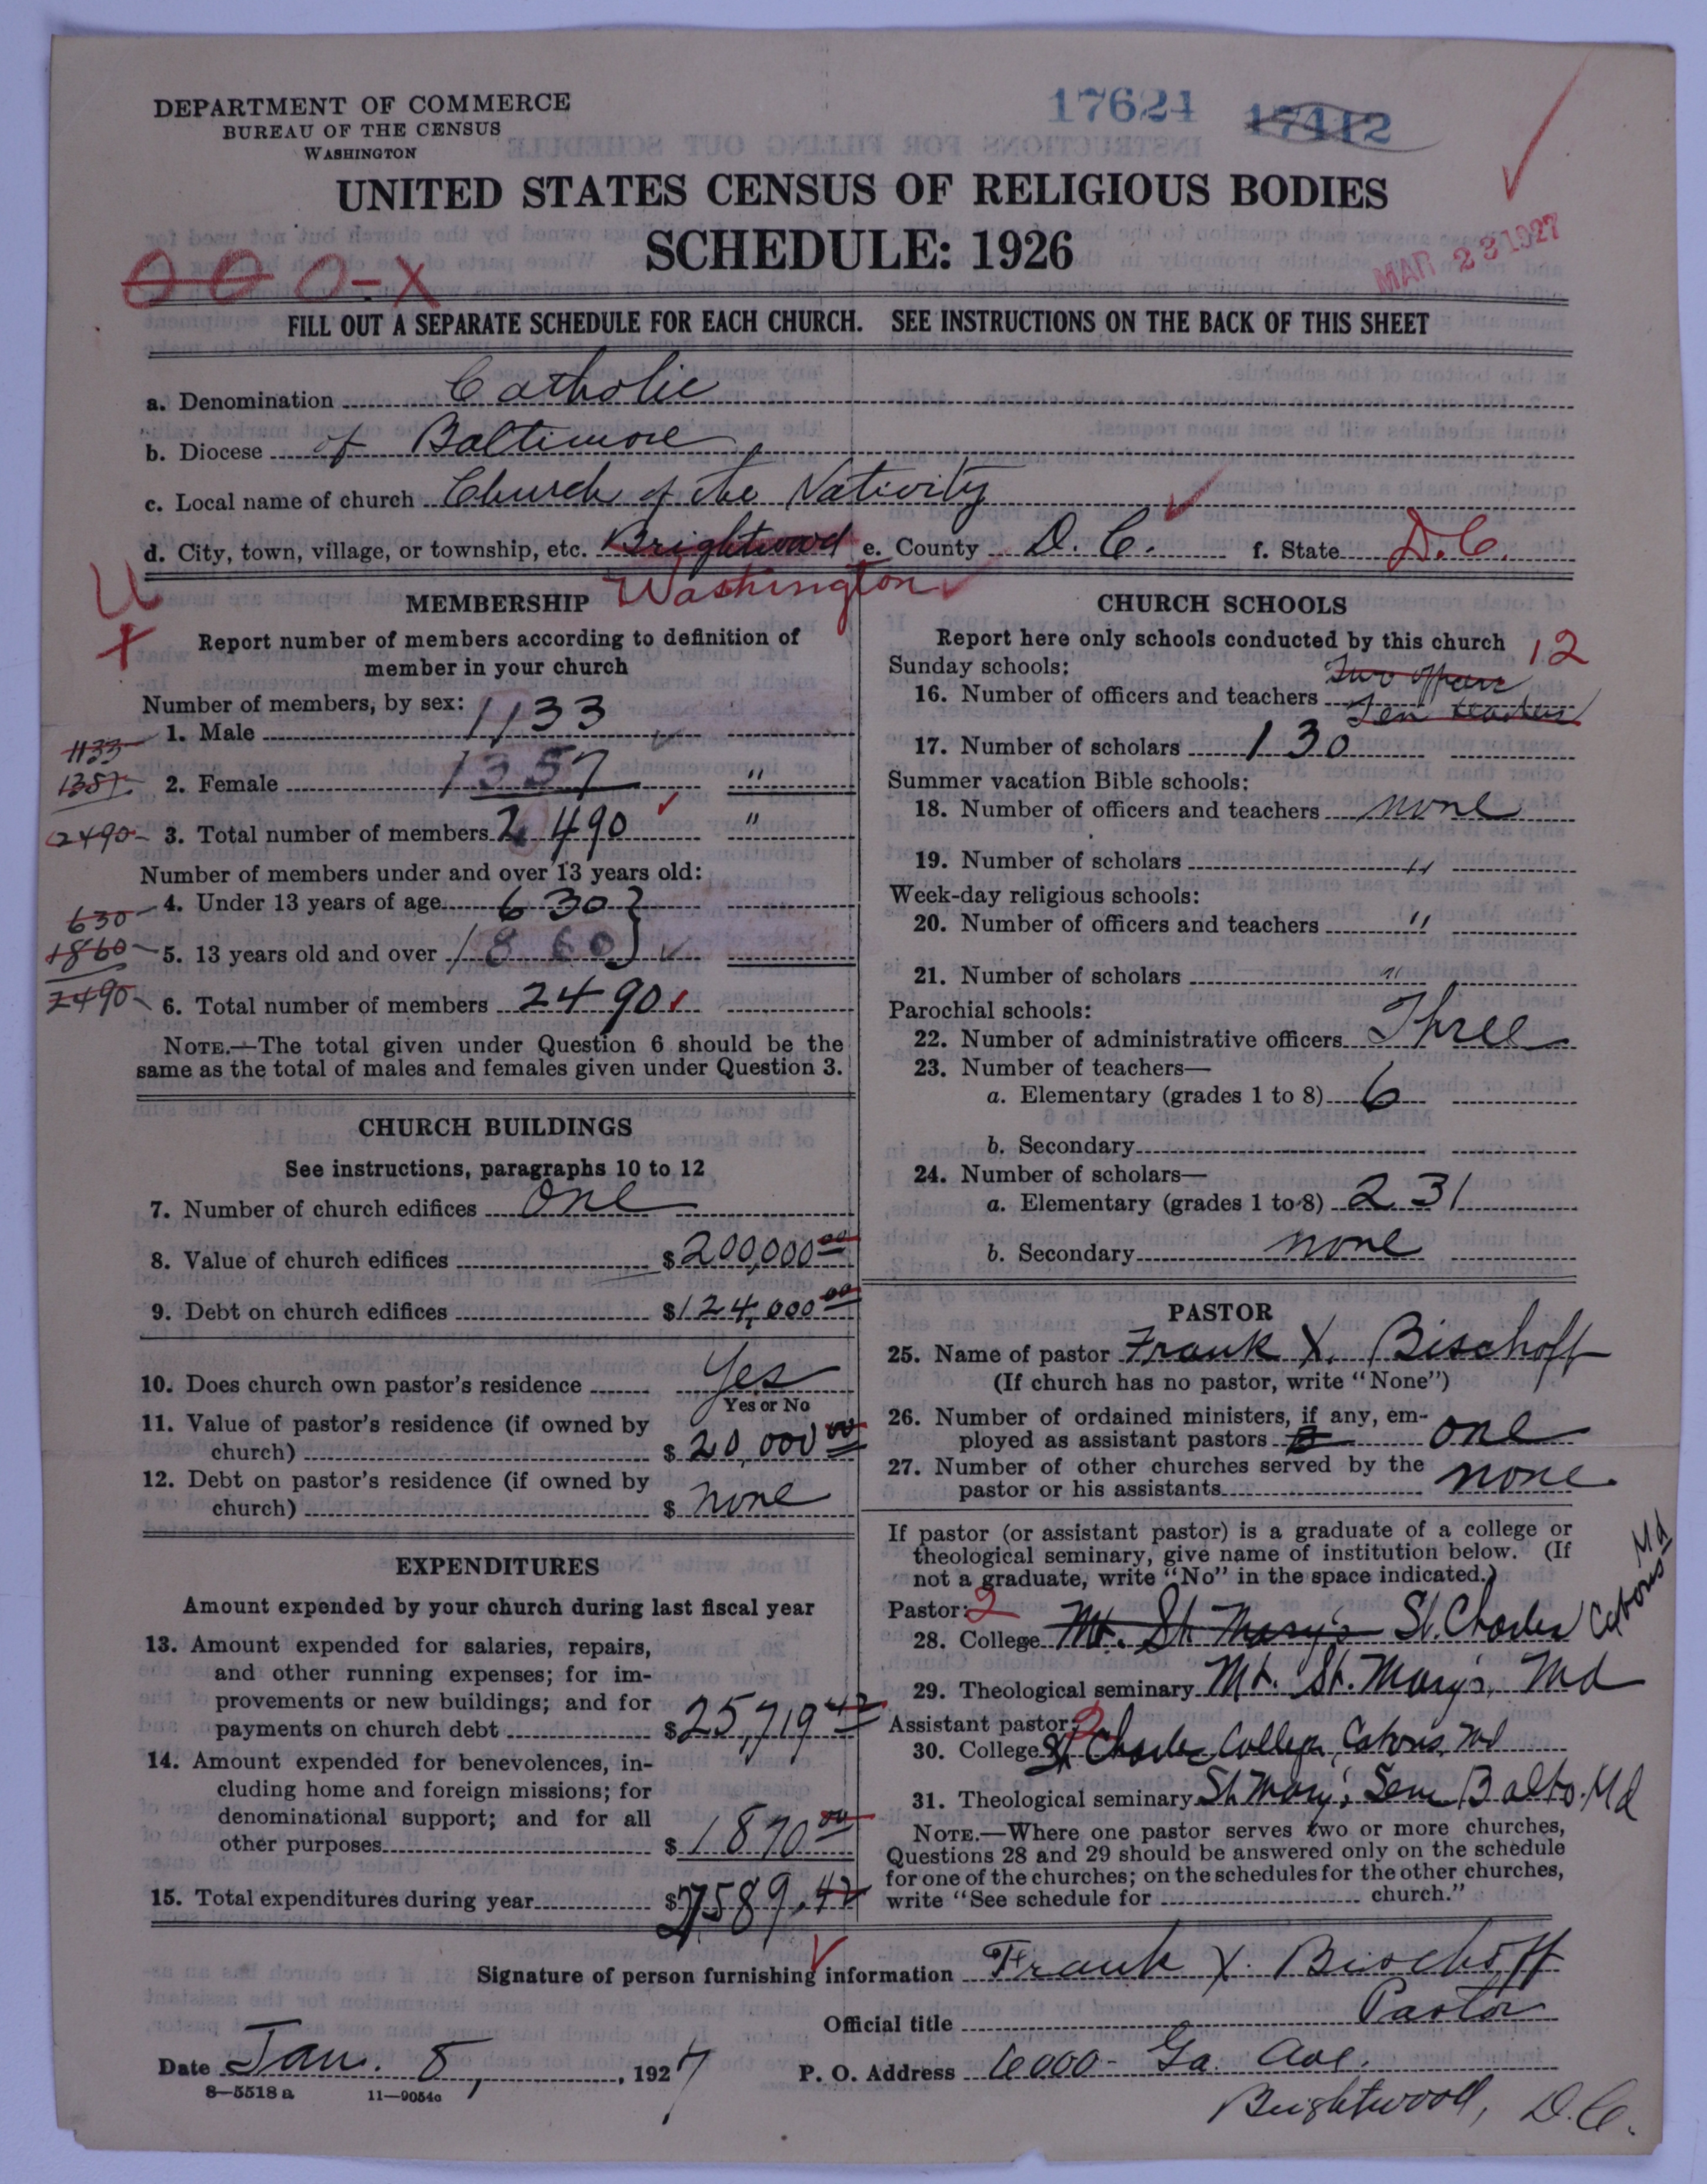 DEPARTMENT OF COMMERCE
BUREAU OF THE CENSUS
WASHINGTON
17624 17412
UNITED STATES CENSUS OF RELIGIOUS BODIES
SCHEDULE: 1926
MAR 23 1927
000-X
FILL OUT A SEPARATE SCHEDULE FOR EACH CHURCH. SEE INSTRUCTIONS ON THE BACK OF THIS SHEET
a. Denomination Catholic
b. Diocese of Baltimore
c. Local name of church Church of the Nativity
d. City, town, village, or township, etc. Brightwood e. County D. C. f. State D.C.
Washington
MEMBERSHIP
Report number of members according to definition of
member in your church
Number of members, by sex:
1. Male 1133
1133
2. Female 1357 "
1357
3. Total number of members 2490 "
2490
Number of members under and over 13 years old:
4. Under 13 years of age 630
630
5. 13 years old and over 1860
1860
6. Total number of members 2490
2490
NOTE.—The total given under Question 6 should be the
same as the total of males and females given under Question 3.
CHURCH BUILDINGS
See instructions, paragraphs 10 to 12
7. Number of church edifices One
8. Value of church edifices $ 200,000 00
9. Debt on church edifices $ 124,000 00
10. Does church own pastor's residence Yes
Yes or No
11. Value of pastor's residence (if owned by
church) $ 20,000 00
12. Debt on pastor's residence (if owned by
church) $ none
EXPENDITURES
Amount expended by your church during last fiscal year
13. Amount expended for salaries, repairs,
and other running expenses; for im-
provements or new buildings; and for
payments on church debt $ 25,719 42
14. Amount expended for benevolences, in-
cluding home and foreign missions; for
denominational support; and for all
other purposes $ 1870 00
15. Total expenditures during year $ 27589.42
CHURCH SCHOOLS
Report here only schools conducted by this church
12
Sunday schools:
Two officers
16. Number of officers and teachers Ten teachers
17. Number of scholars 130
Summer vacation Bible schools:
18. Number of officers and teachers none
19. Number of scholars "
Week-day religious schools:
20. Number of officers and teachers "
21. Number of scholars "
Parochial schools:
22. Number of administrative officers Three
23. Number of teachers—
a. Elementary (grades 1 to 8) 6
b. Secondary
24. Number of scholars—
a. Elementary (grades 1 to 8) 231
b. Secondary none
PASTOR
25. Name of pastor Frank X. Bischoff
(If church has no pastor, write "None")
26. Number of ordained ministers, if any, em-
ployed as assistant pastors one
27. Number of other churches served by the
pastor or his assistants none
If pastor (or assistant pastor) is a graduate of a college or
theological seminary, give name of institution below. (If
not a graduate, write "No" in the space indicated.)
Pastor: 2
28. College Mt. St Mary's St. Charles Catons Md
29. Theological seminary Mt. St. Mary's, Md
Assistant pastor: 2
30. College St Charles College, Catons, Md
31. Theological seminary St Mary's Sem Balto. Md
NOTE.—Where one pastor serves two or more churches,
Questions 28 and 29 should be answered only on the schedule
for one of the churches; on the schedules for the other churches,
write "See schedule for church."
Signature of person furnishing information Frank X. Bischoff
Official title Pastor
Date Jan. 8, , 1927 P. O. Address 6000 - Ga. Ave.
8—5518 a 11—9054c
Brightwood, D.C.